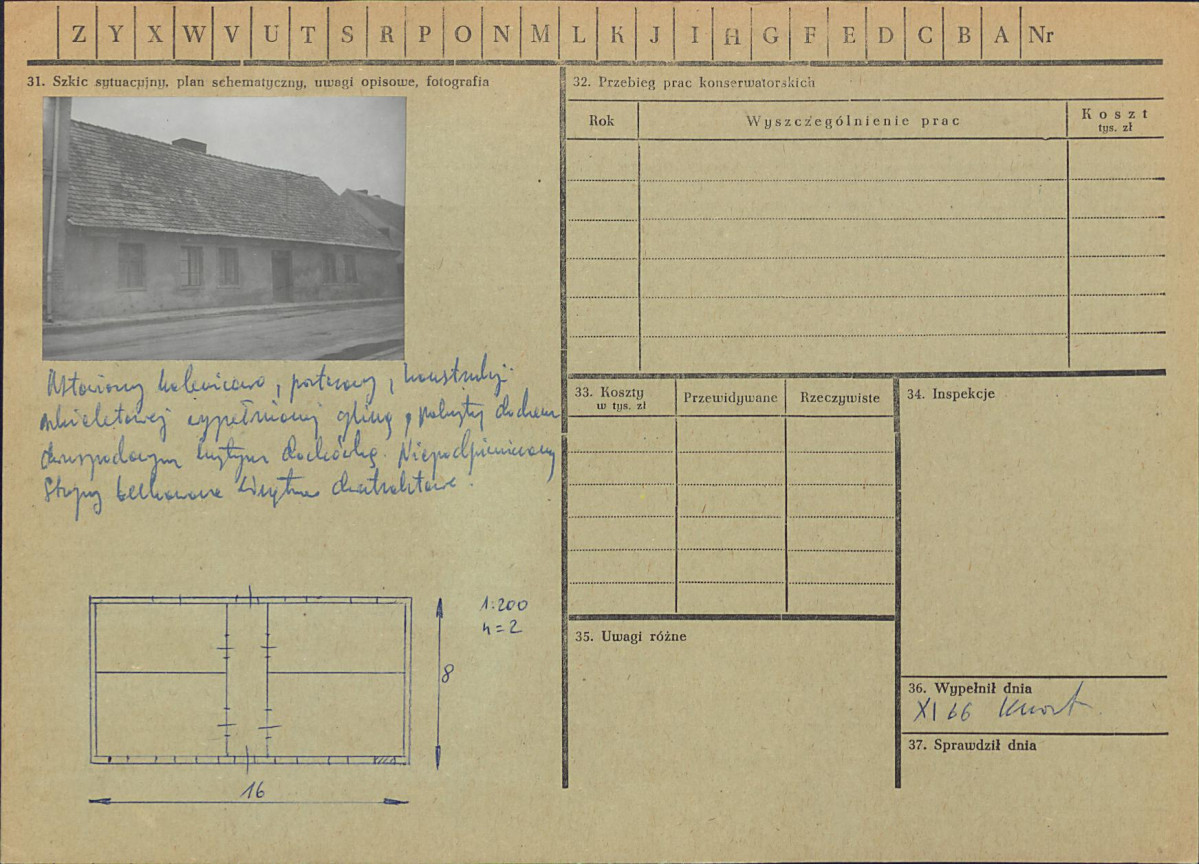 Z Y X W V U T S R P O N M L K J I H G F E D C B A Nr
31. Szkic sytuacyjny, plan schematyczny, uwagi opisowe, fotografia
32. Przebieg prac konserwatorskich
Rok
Wyszczególnienie prac
Koszt
tys. zł
Ustawiony kalenicowo, parterowy, konstrukcji
szkieletowej wypełnionej gliną, pokryty dachem
dwuspadowym krytym dachówką. Niepodpiwniczony
Stropy belkowane
33. Koszty
w tys. zł
Przewidywane
Rzeczywiste
34. Inspekcje
1:200
h=2
8
16
35. Uwagi różne
36. Wypełnił dnia
XI 66
37. Sprawdził dnia